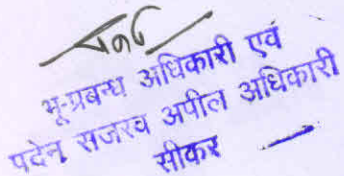 भू-प्रबन्ध अधिकारी एवं
पदेन सजरव अपील अधिकारी
सीकर